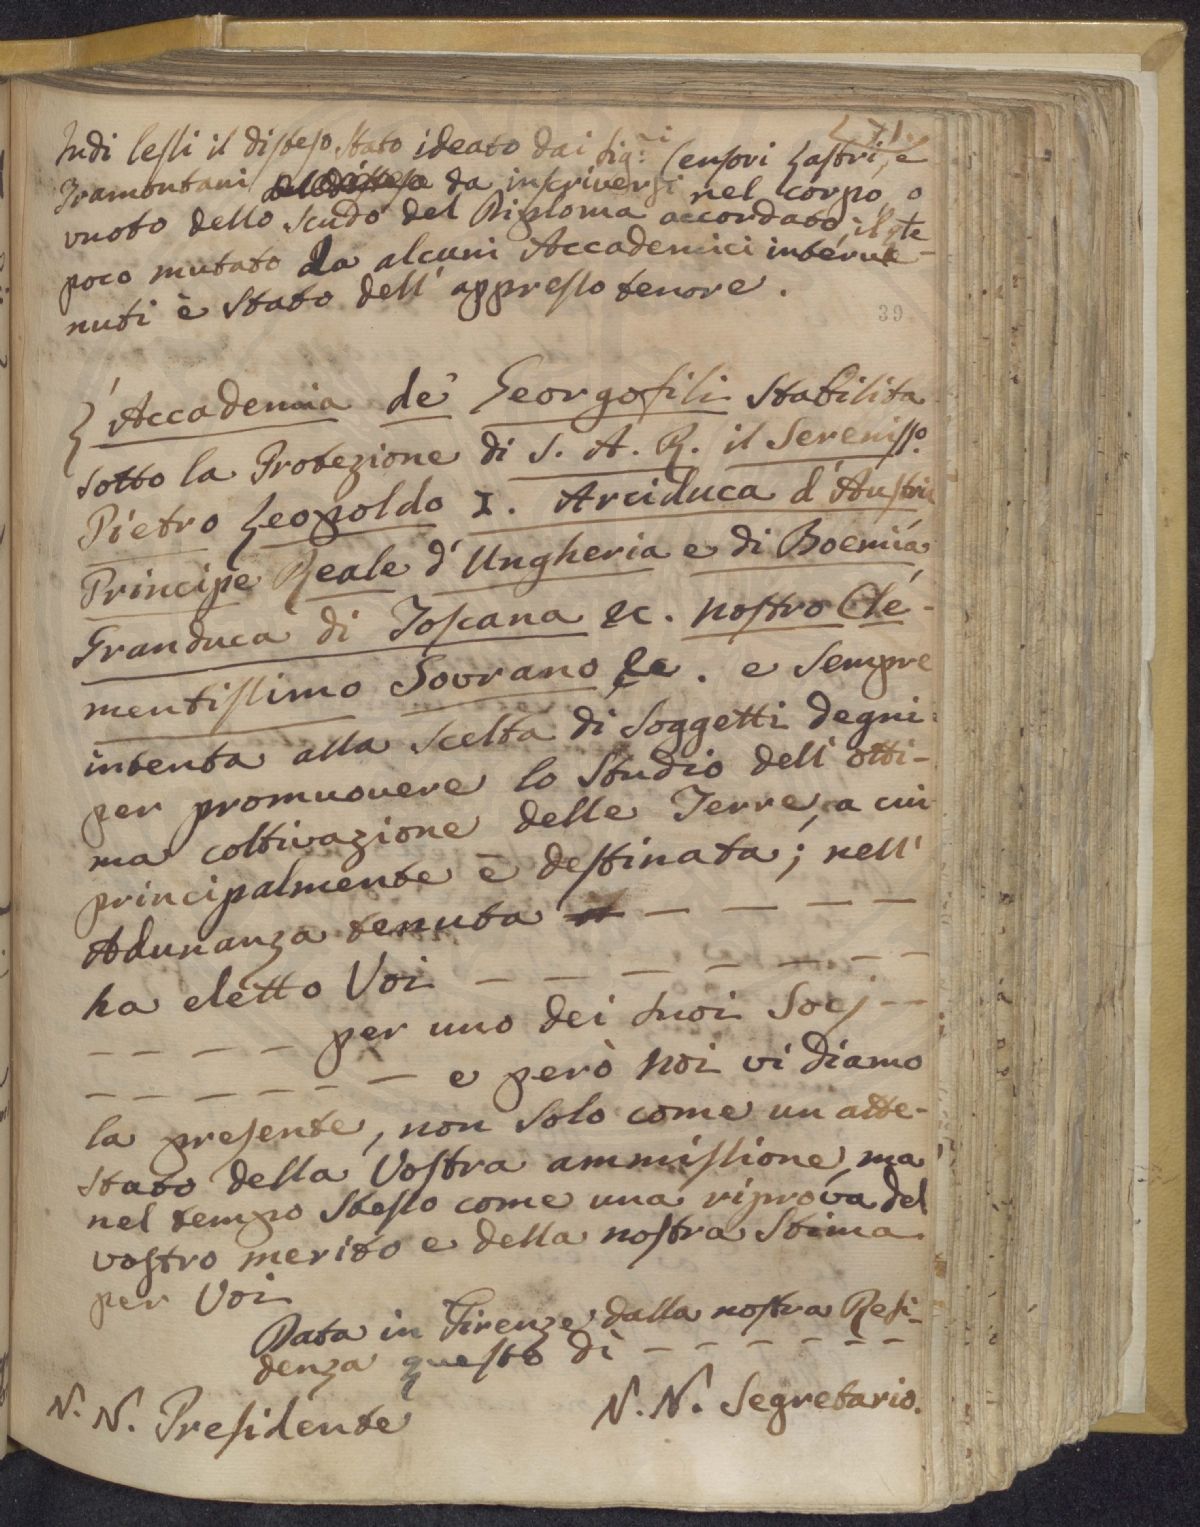 71.
Indi lessi il disteso stato ideato dai Sig.ri Censori Lastri, e
Tramontani da inscriversi nel corpo, o
vuoto dello Scudo del Diploma accordato, il
poco mutato da alcuni Accademici interve-
nuti è stato dell' appresso tenore.
39
L'Accademia de' Georgofili stabilita
sotto la Protezione di S. A. R. il Sereniss.o
Pietro Leopoldo I. Arciduca d'Austria
Principe Reale d'Ungheria e di Boemia,
Granduca di Toscana &c. nostro Cle-
mentissimo Sovrano &c. e sempre
intenta alla scelta di Soggetti degni
per promuovere lo Studio dell' otti-
ma coltivazione delle Terre, a cui
principalmente è destinata; nell'
Adunanza tenuta — — — — —
ha eletto Voi — — — — — — —
— — — — per uno dei suoi Socj —
— — — — — — e però noi vi diamo
la presente, non solo come un atte-
stato della Vostra ammissione, ma
nel tempo stesso come una riprova del
vostro merito e della nostra Stima
per Voi
Data in Firenze dalla nostra Resi-
denza questo dì — — — — — —
N. N. Presidente N. N. Segretario.